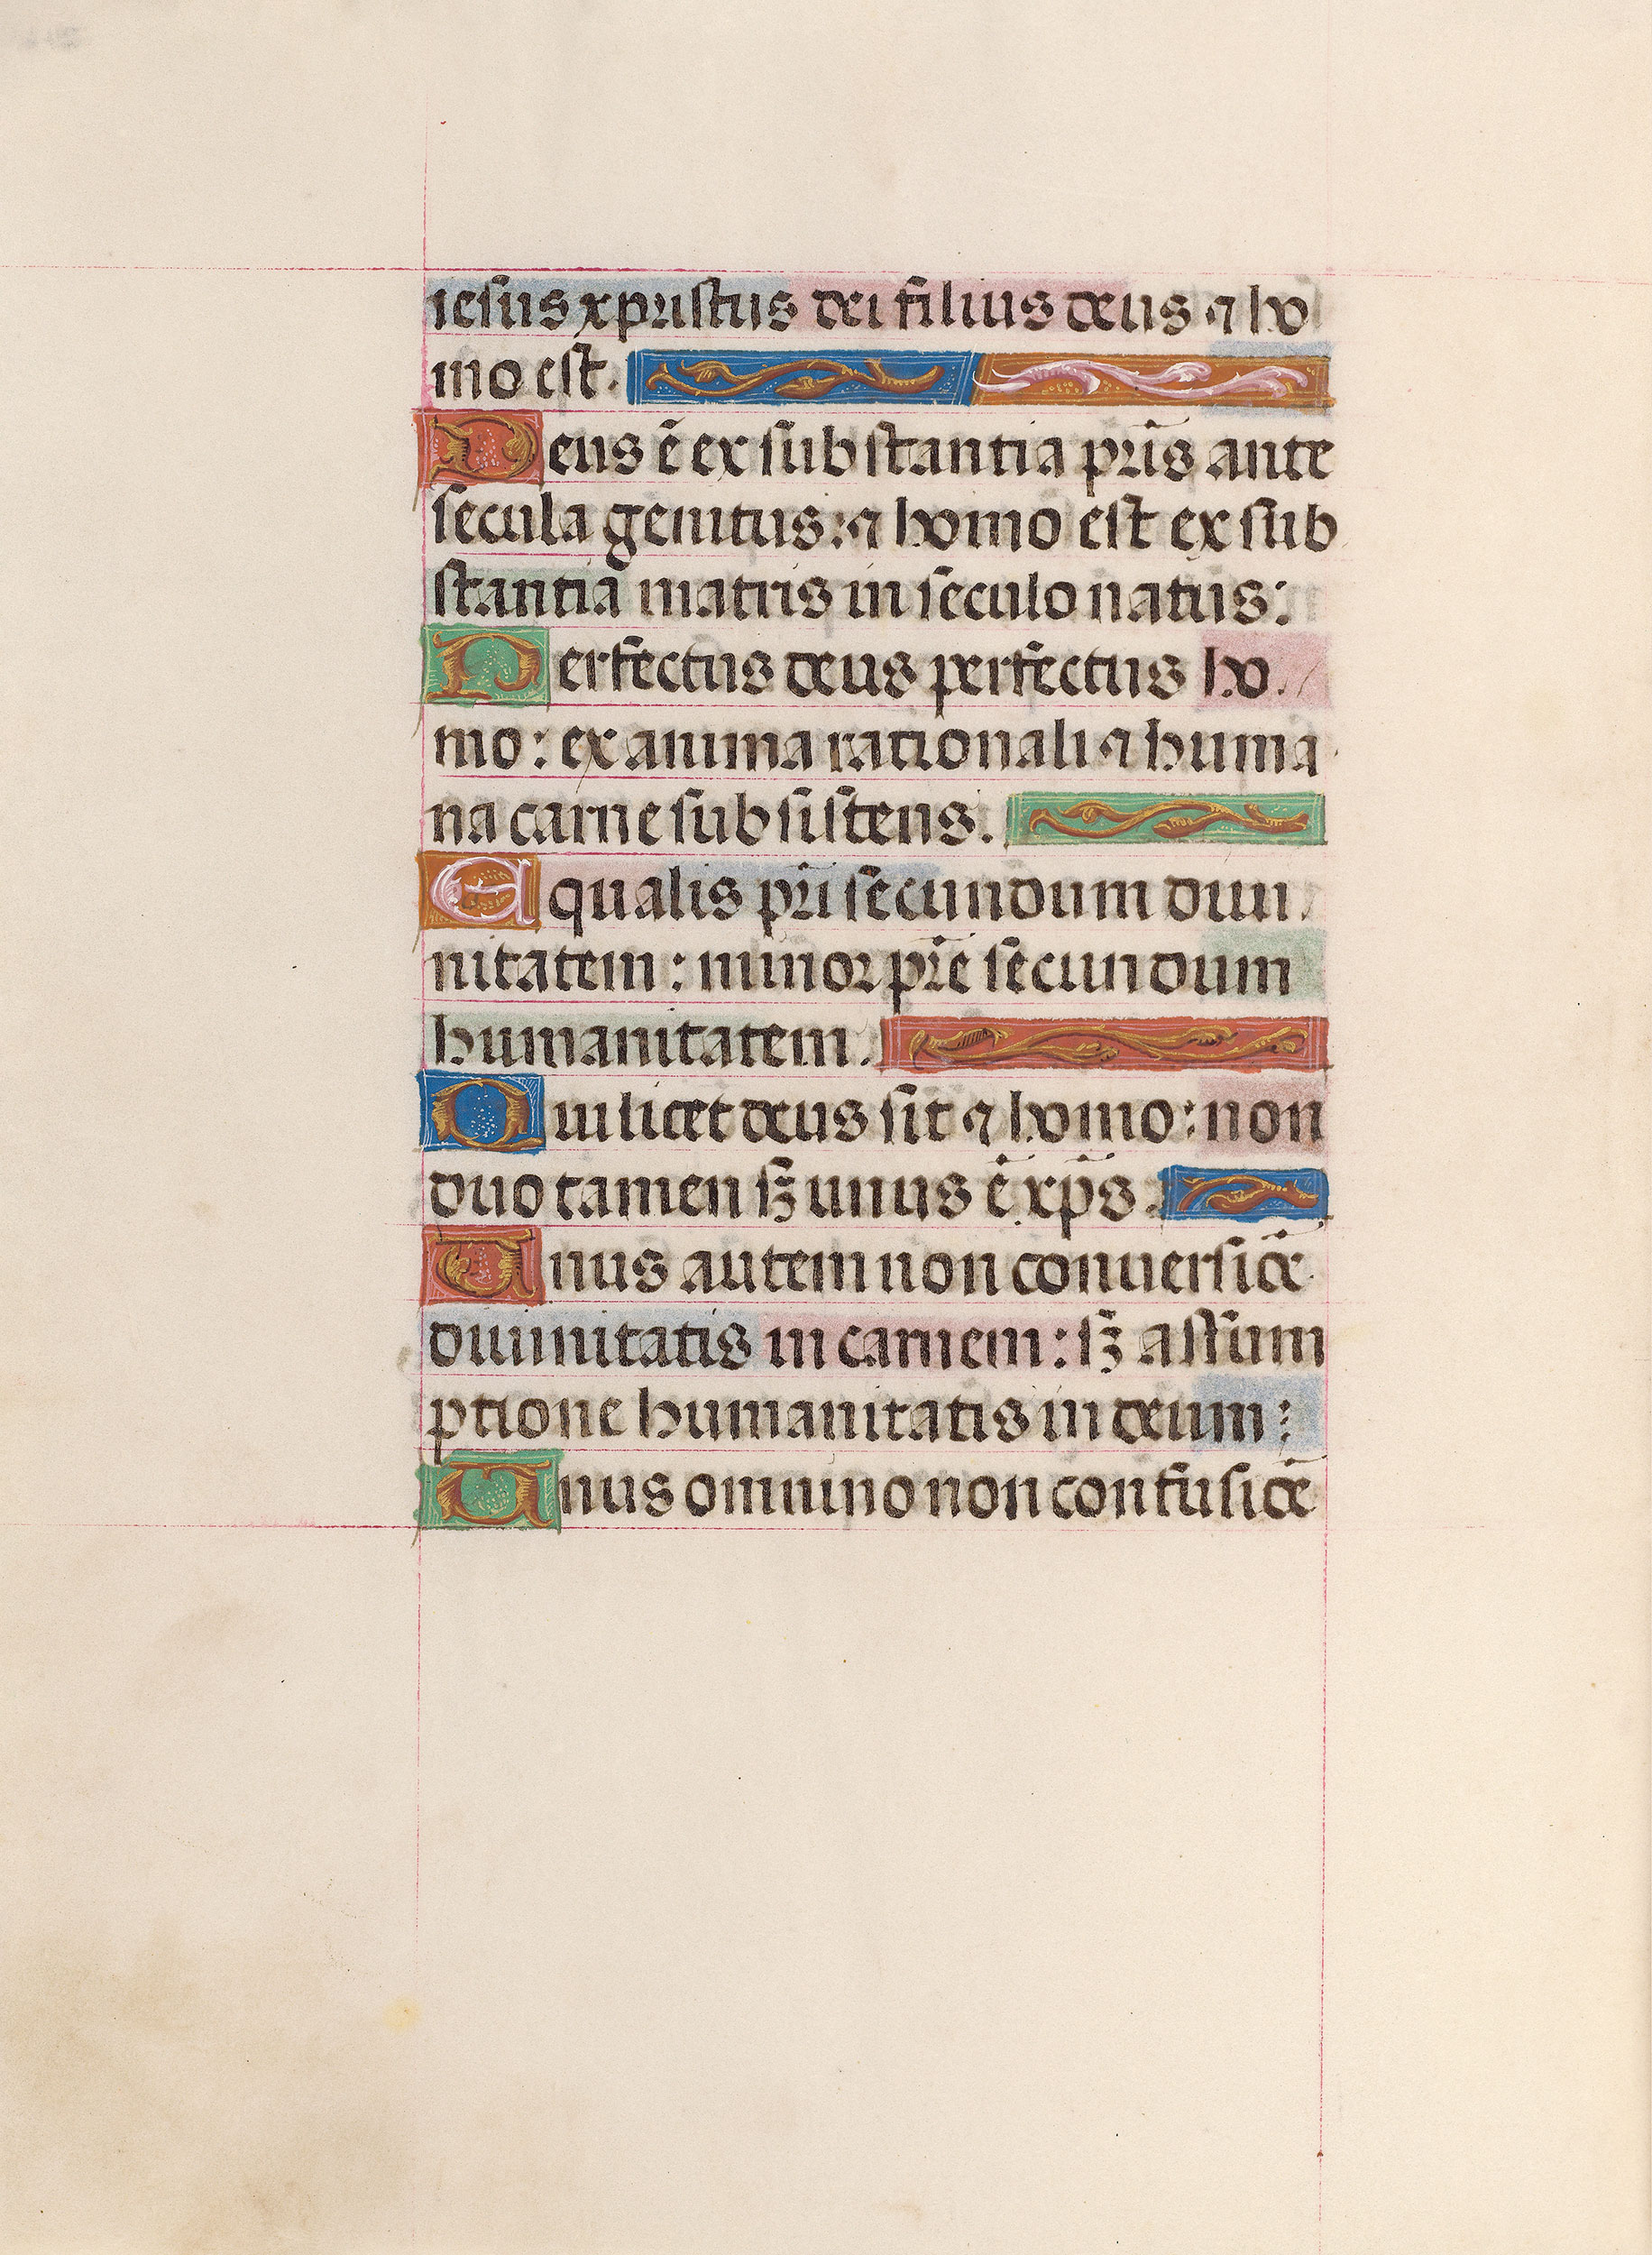 iesus xpristus dei filius deus ⁊ ho
mo est.
Deus ē ex substantia pr̄is ante
secula genitus: ⁊ homo est ex sub
stantia matris in seculo natus:
Perfectus deus perfectus ho
mo: ex anima rationali ⁊ huma
na carne subsistens.
Equalis pr̄i secundum diui
nitatem: minor pr̄e secundum
humanitatem.
Qui licet deus sit ⁊ homo: non
duo tamen sꝫ unus ē xp̄s.
Unus autem non conuersiōe
diuinitatis in carnem: sꝫ assum
ptione humanitatis in deum:
Unus omnino non confusiōe